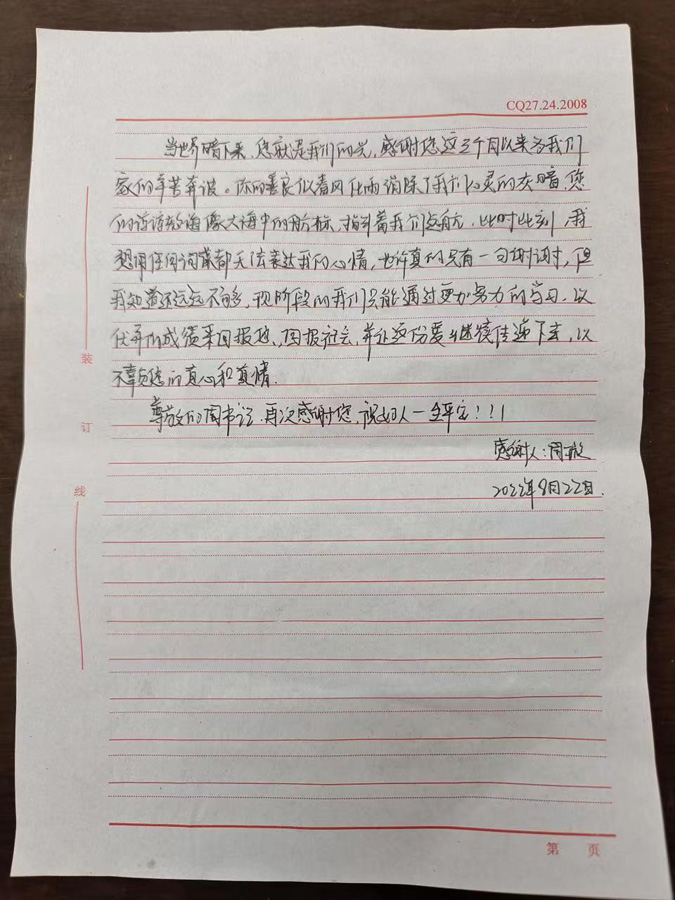 CQ27.24.2008
当世界暗下来，您就是我们的光，感谢您这三个月以来为我们
家的辛苦奔波。你的善良似春风化雨消除了我们心灵的灰暗，您
的谆谆教诲像大海中的航标，指引着我们远航，此时此刻，我
想用任何词藻都无法表达我的心情，也许真的只有一句谢谢，但
我知道还远远不够，现阶段的我们只能通过更加努力的学习，以
优异的成绩来回报您、回报社会，并让这份爱继续传递下去，以
不辜负您的真心和真情.
尊敬的周书记，再次感谢您，祝好人一生平安！！！
感谢人：周
2022年8月22日.
装
订
线
第 页